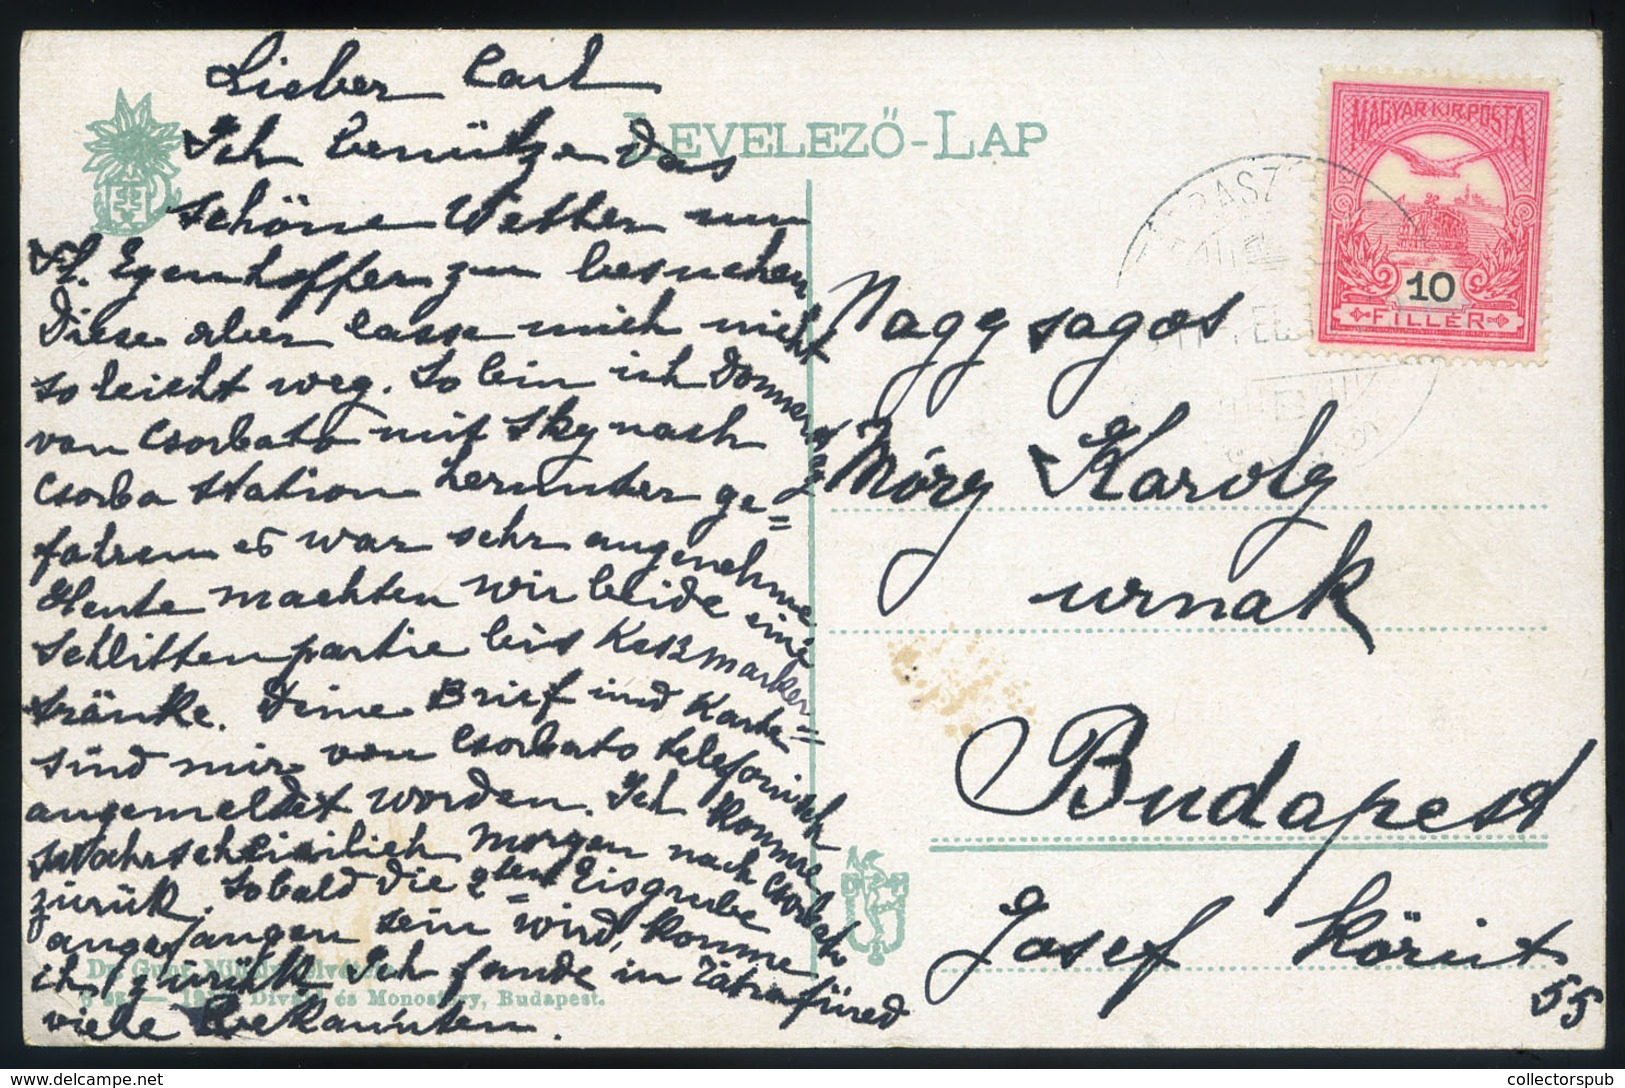 Lieber Carl
LEVELEZŐ-LAP
MAGYAR KIR. POSTA
10
FILLÉR
Ich benütze das
schöne Wetter um
Egenhoffer zu besuchen
Diese aber lasse mich nicht
so leicht weg. So bin ich Donners
von Csorbato mit Sky nach
Csorba station herunter ge=
fahren es war sehr angenehme
Heute machten wir beide eine
schlittenpartie bis Keszmarker=
tränke. Deine Brief und Karte
sind mir von Csorbato telefonisch
angemeldet worden. Ich komme
wahrscheinlich morgen nach Csorbato
zurük. Sobald die 2ten Eisgrube
angefangen sein wird, komme
ich zurükk. Ich fande in Tátrafüred
viele Bekannten.
Nagysagos
Móry Karoly
urnak
Budapest
Josef Körut
55
Divald és Monostory, Budapest.
collectorspub